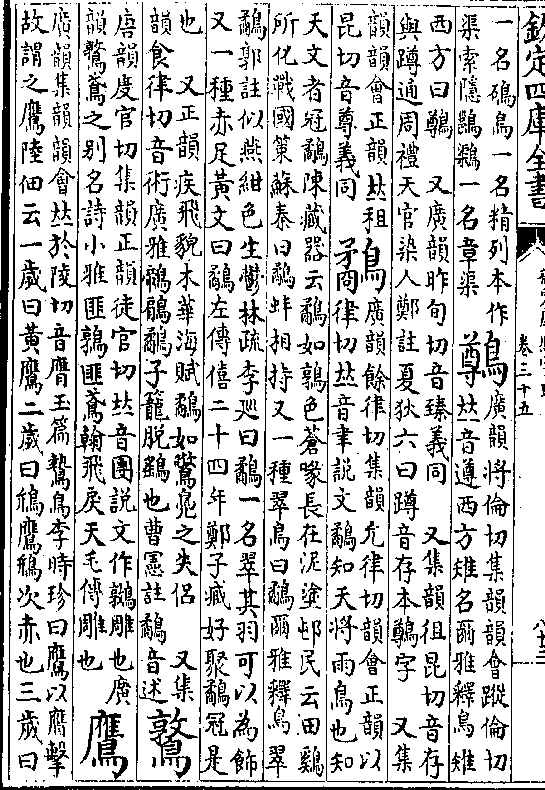 欽定四庫全書
卷三十五
一名鳥一名精列本作
渠索隱鸊鷉一名章渠
鷷
廣韻將倫切集韻韻會蹤倫切
𠀤音遵西方雉名爾雅釋鳥雉
西方曰鷷 又廣韻昨旬切音臻義同 又集韻徂昆切音存
與蹲通周禮天官染人鄭註夏狄六曰蹲音存本鷷字 又集
韻韻會正韻𠀤租
昆切音尊義同
鷸
廣韻餘律切集韻允律切韻會正韻以
律切𠀤音聿說文鷸知天將雨鳥也知
天文者冠鷸陳藏器云鷸如鶉色蒼喙長在泥塗邨民云田鷄
所化戰國策蘇秦曰鷸蚌相持又一種翠鳥曰鷸爾雅釋鳥翠
鷸郭註似燕紺色生鬱林疏李廵曰鷸一名翠其羽可以為飾
又一種赤足黃文曰鷸左傳僖二十四年鄭子臧好聚鷸冠是
也 又正韻疾飛貌木華海賦鷸如驚鳧之失侶 又集
韻食律切音術廣雅鷸子籠脫鷂也曹憲註鷸音述
鷻
唐韻度官切集韻正韻徒官切𠀤音團說文作鷻雕也廣
韻鷙鳶之别名詩小雅匪鶉匪鳶翰飛戾天毛傳雕也
鷹
廣韻集韻韻會𠀤於陵切音膺玉篇鷙鳥李時珍曰鷹以膺擊
故謂之鷹陸佃云一歲曰黃鷹二歲曰鴘鷹鴘次赤也三歲曰